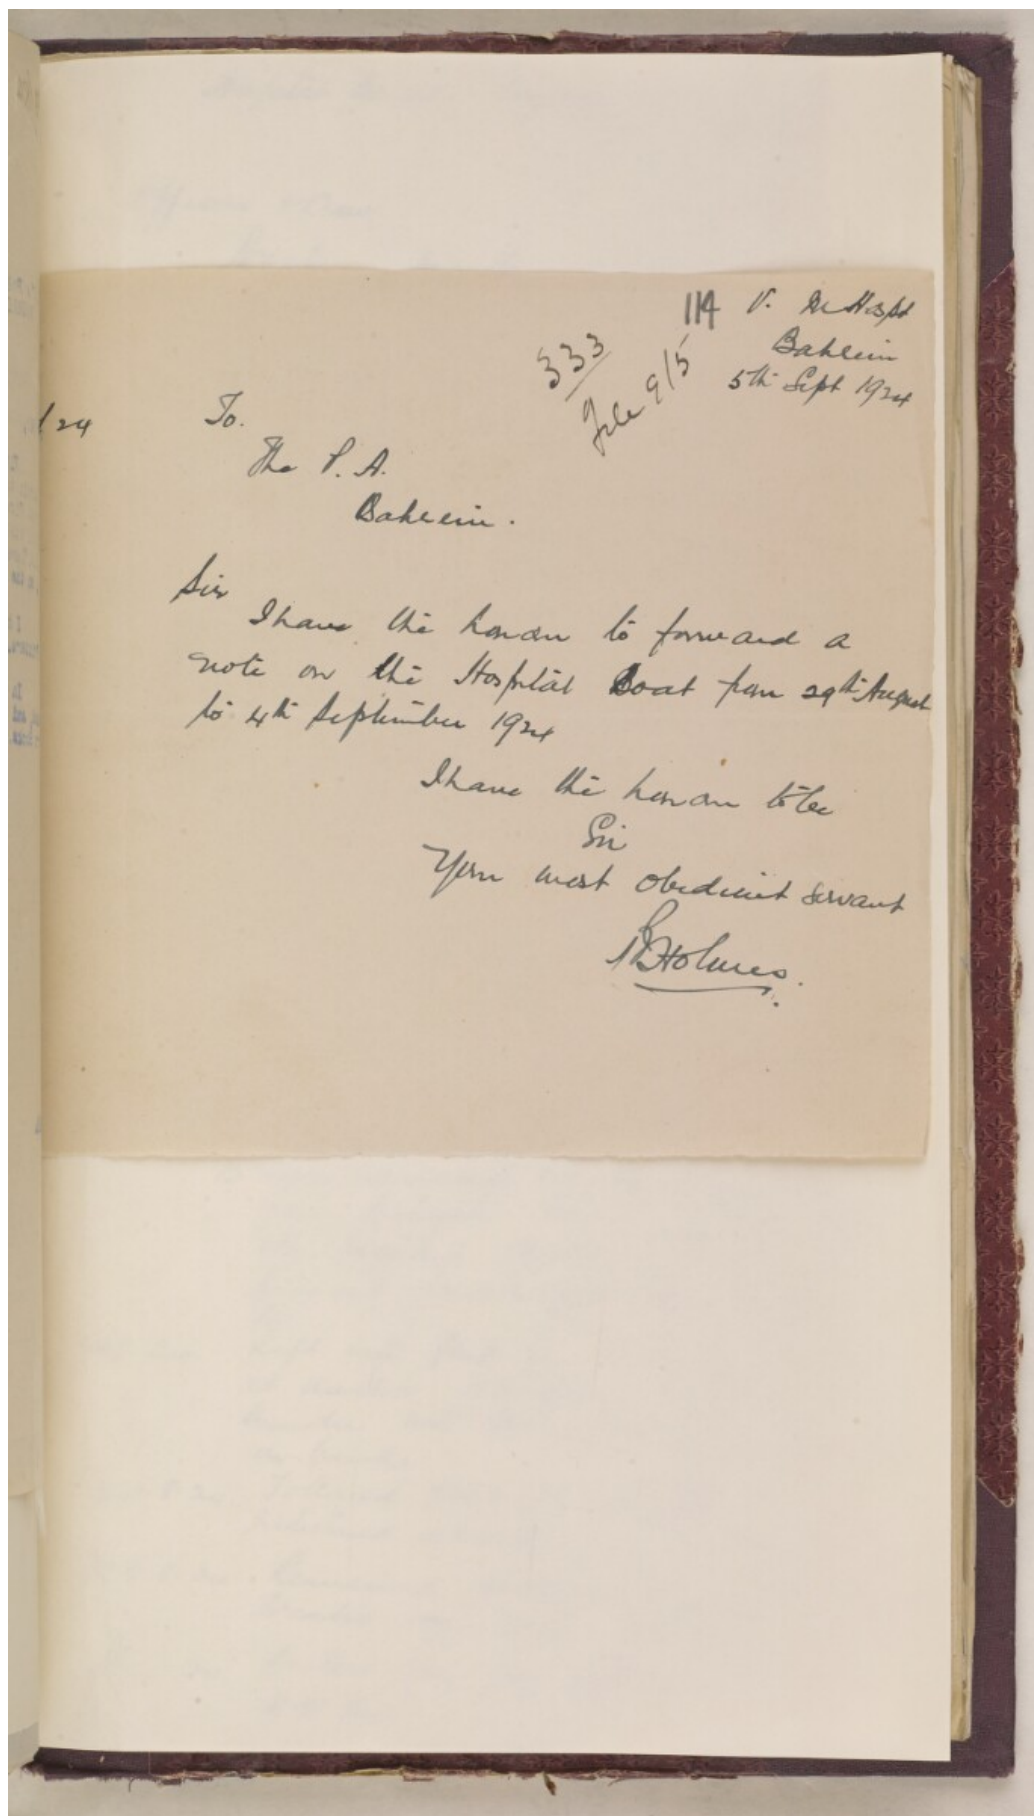 114
V. M Hospt
Bahrein
5th Sept 1924
333
File 9/5
/24
To.
The P. A.
Bahrein.
Sir
I have the honour to forward a
note on the Hospital Boat from 29th August
to 4th September 1924
I have the honour to be
Sir
Your most obedient servant
Holmes.